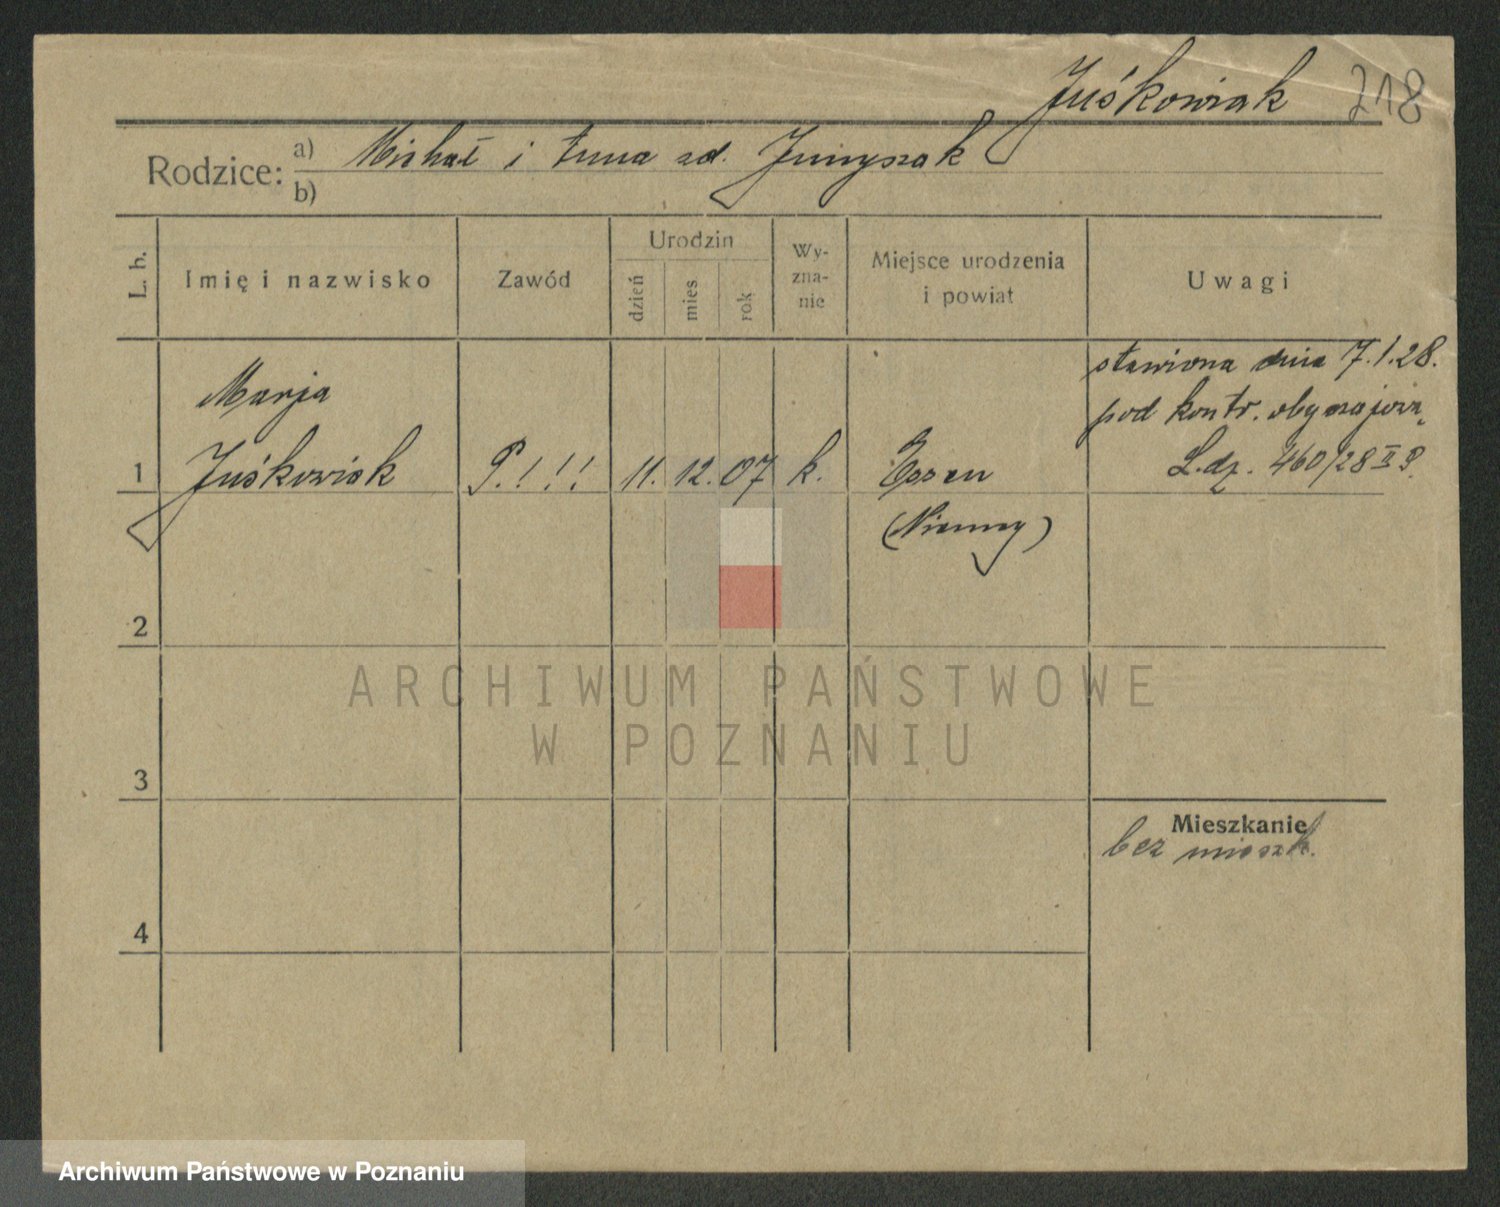 Juśkowiak 218
Rodzice: a) Michał i Anna zd.
b)
L. b.
Imię i nazwisko
Zawód
Urodzin
dzień
mies
rok
Wy-
zna-
nie
Miejsce urodzenia
i powiat
Uwagi
stawiona dnia 7.1.28.
pod kontr. obyczajową
L.dz. 460/28 II P.
Marja
1 Juśkowiak P.!!! 11. 12. 07 k. Essen
(Niemcy)
2
3
4
Mieszkanie
bez mieszk.
ARCHIWUM PAŃSTWOWE
W POZNANIU
Archiwum Państwowe w Poznaniu